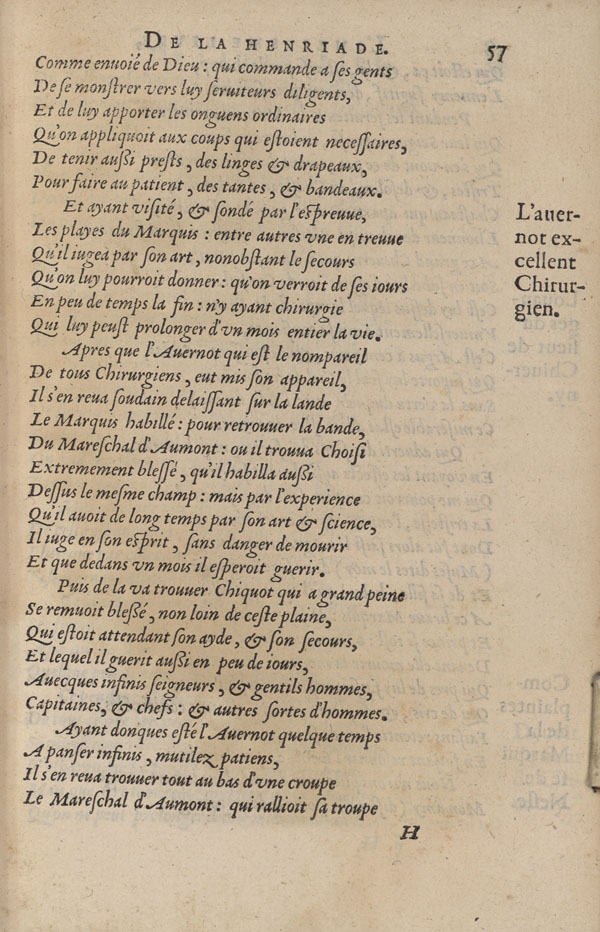 DE LA HENRIADE. 57
Comme enuoié de Dieu : qui commande a ses gents
De se monstrer vers luy seruiteurs diligents,
Et de luy apporter les onguens ordinaires
Qu'on appliquoit aux coups qui estoient necessaires,
De tenir aussi prests, des linges & drapeaux,
Pour faire au patient, des tantes, & bandeaux.
Et ayant visité, & sondé par l'espreuue,
Les playes du Marquis : entre autres vne en treuue
Qu'il iugea par son art, nonobstant le secours
Qu'on luy pourroit donner : qu'on verroit de ses iours
En peu de temps la fin : n'y ayant chirurgie
Qui luy peust prolonger d'vn mois entier la vie.
Apres que l'Auernot qui est le nompareil
De tous Chirurgiens, eut mis son appareil,
Il s'en reua soudain delaissant sur la lande
Le Marquis habillé : pour retrouuer la bande,
Du Mareschal d'Aumont : ou il trouua Choisi
Extremement blessé, qu'il habilla aussi
Dessus le mesme champ : mais par l'experience
Qu'il auoit de long temps par son art & science,
Il iuge en son esprit, sans danger de mourir
Et que dedans vn mois il esperoit guerir.
Puis de la va trouuer Chiquot qui a grand peine
Se remuoit blessé, non loin de ceste plaine,
Qui estoit attendant son ayde, & son secours,
Et lequel il guerit aussi en peu de iours,
Auecques infinis seigneurs, & gentils hommes,
Capitaines, & chefs : & autres sortes d'hommes.
Ayant donques esté l'Auernot quelque temps
A panser infinis, mutilez patiens,
Il s'en reua trouuer tout au bas d'vne croupe
Le Mareschal d'Aumont : qui rallioit sa troupe
H
L'auer-
not ex-
cellent
Chirur-
gien.